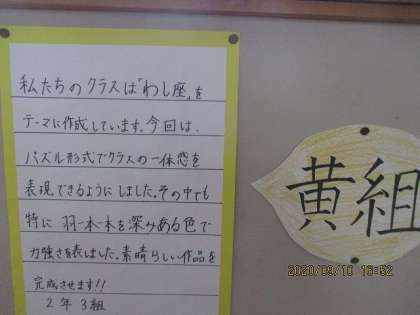 私たちのクラスは「わし座」を
テーマに作成しています。今回は、
パズル形式でクラスの一体感を
表現できるようにしました。その中でも
特に羽一本一本を深みある色で
力強さを表しました。素晴らしい作品を
完成させます!!
2年3組
黄組
2020/09/10 16:52